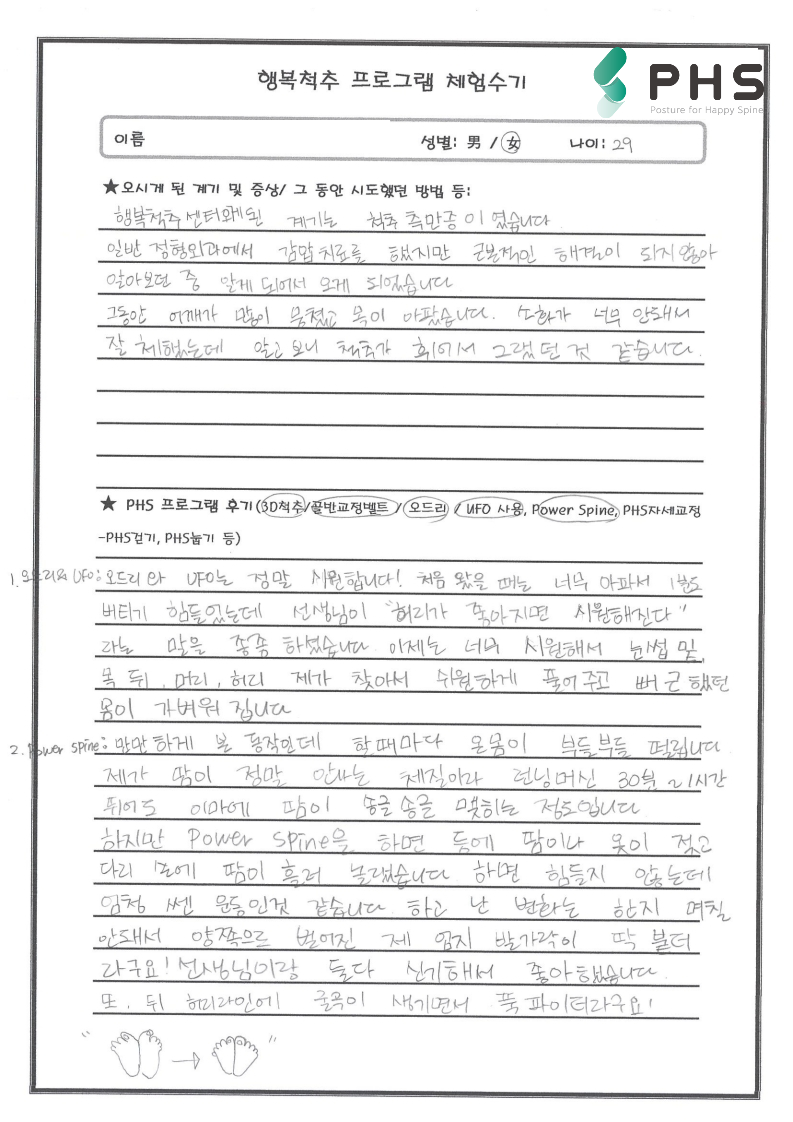 행복척추 프로그램 체험수기
PHS
Posture for Happy Spine
이름 성별: 男 / 女 나이: 29
★오시게 된 계기 및 증상/ 그 동안 시도했던 방법 등:
행복척추센터와게된 계기는 척추 측만증 이였습니다
일반 정형외과에서 감압치료를 했지만 근본적인 해결이 되지않아
알아보던 중 알게 되어서 오게 되었습니다
그동안 어깨가 많이 뭉쳤고 목이 아팠습니다. 소화가 너무 안돼서
잘 체했는데 알고보니 척추가 휘어서 그랬던것 같습니다.
★ PHS 프로그램 후기(3D척추/골반교정벨트 /오드리 / UFO 사용, Power Spine, PHS자세교정
-PHS걷기, PHS눕기 등)
1. 오드리& UFO: 오드리와 UFO는 정말 시원합니다! 처음 왔을 때는 너무 아파서 1분도
버티기 힘들었는데 선생님이 "허리가 좋아지면 시원해진다"
라는 말을 종종 하셨습니다 이제는 너무 시원해서 눈썹 밑,
목 뒤, 머리, 허리 제가 찾아서 쉬원하게 풀어주고 뻐근했던
몸이 가벼워 집니다
2. Power Spine: 만만하게 본 동작인데 할때마다 온몸이 부들부들 떨립니다
제가 땀이 정말 안나는 체질이라 런닝머신 30분~1시간
뛰어도 이마에 땀이 송글송글 맺히는 정도입니다
하지만 Power Spine을 하면 등에 땀이나 옷이 젖고
다리 땀이 흘러 놀랬습니다 하면 힘들지 않는데
엄청 쎈 운동인것 같습니다 하고 난 변화는 한지 며칠
안돼서 양쪽으로 벌어진 제 엄지 발가락이 딱 붙더
라구요! 선생님이랑 둘다 신기해서 좋아했습니다
또, 뒤 허리라인에 굴곡이 생기면서 푹 파이더라구요!
" → "